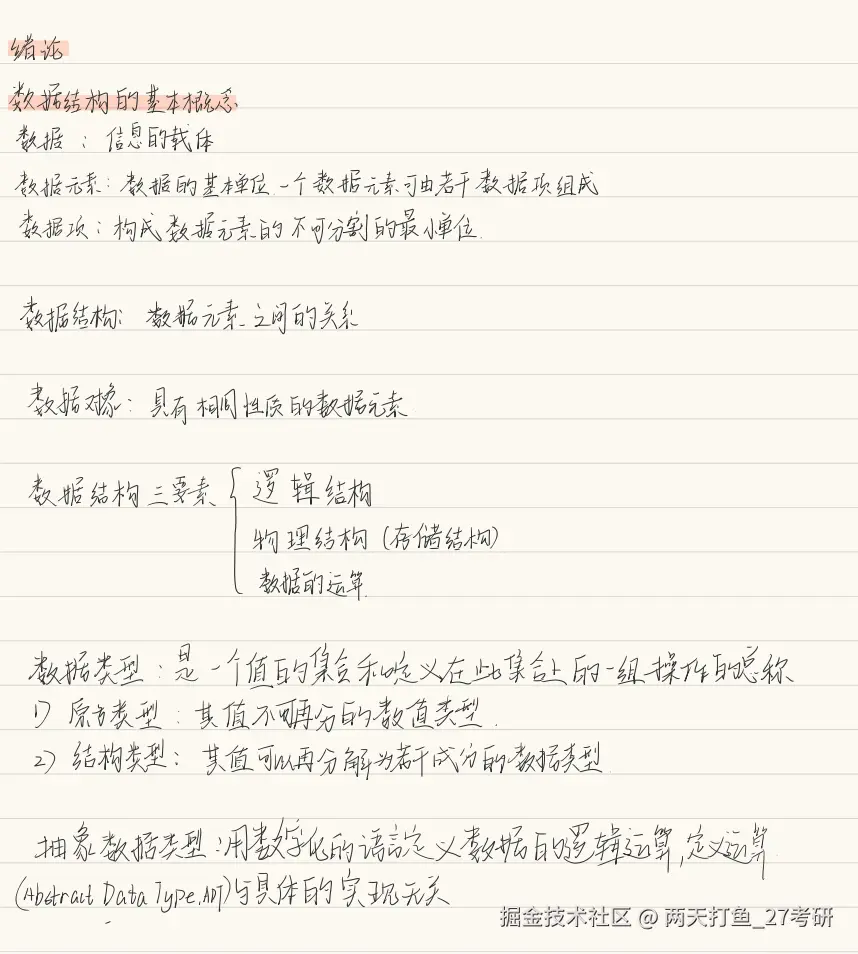 绪论
数据结构的基本概念
数据：信息的载体
数据元素：数据的基本单位 一个数据元素可由若干数据项组成
数据项：构成数据元素的不可分割的最小单位.
数据结构：数据元素之间的关系
数据对象：具有相同性质的数据元素
数据结构三要素 { 逻辑结构
物理结构（存储结构）
数据的运算.
数据类型：是一个值的集合和定义在此集合上的一组操作的总称
1) 原子类型：其值不可再分的数值类型.
2) 结构类型：其值可以再分解为若干成分的数据类型.
抽象数据类型：用数学化的语言定义数据的逻辑运算,定义运算
(Abstract Data Type,ADT)与具体的实现无关
掘金技术社区 @ 两天打鱼_27考研